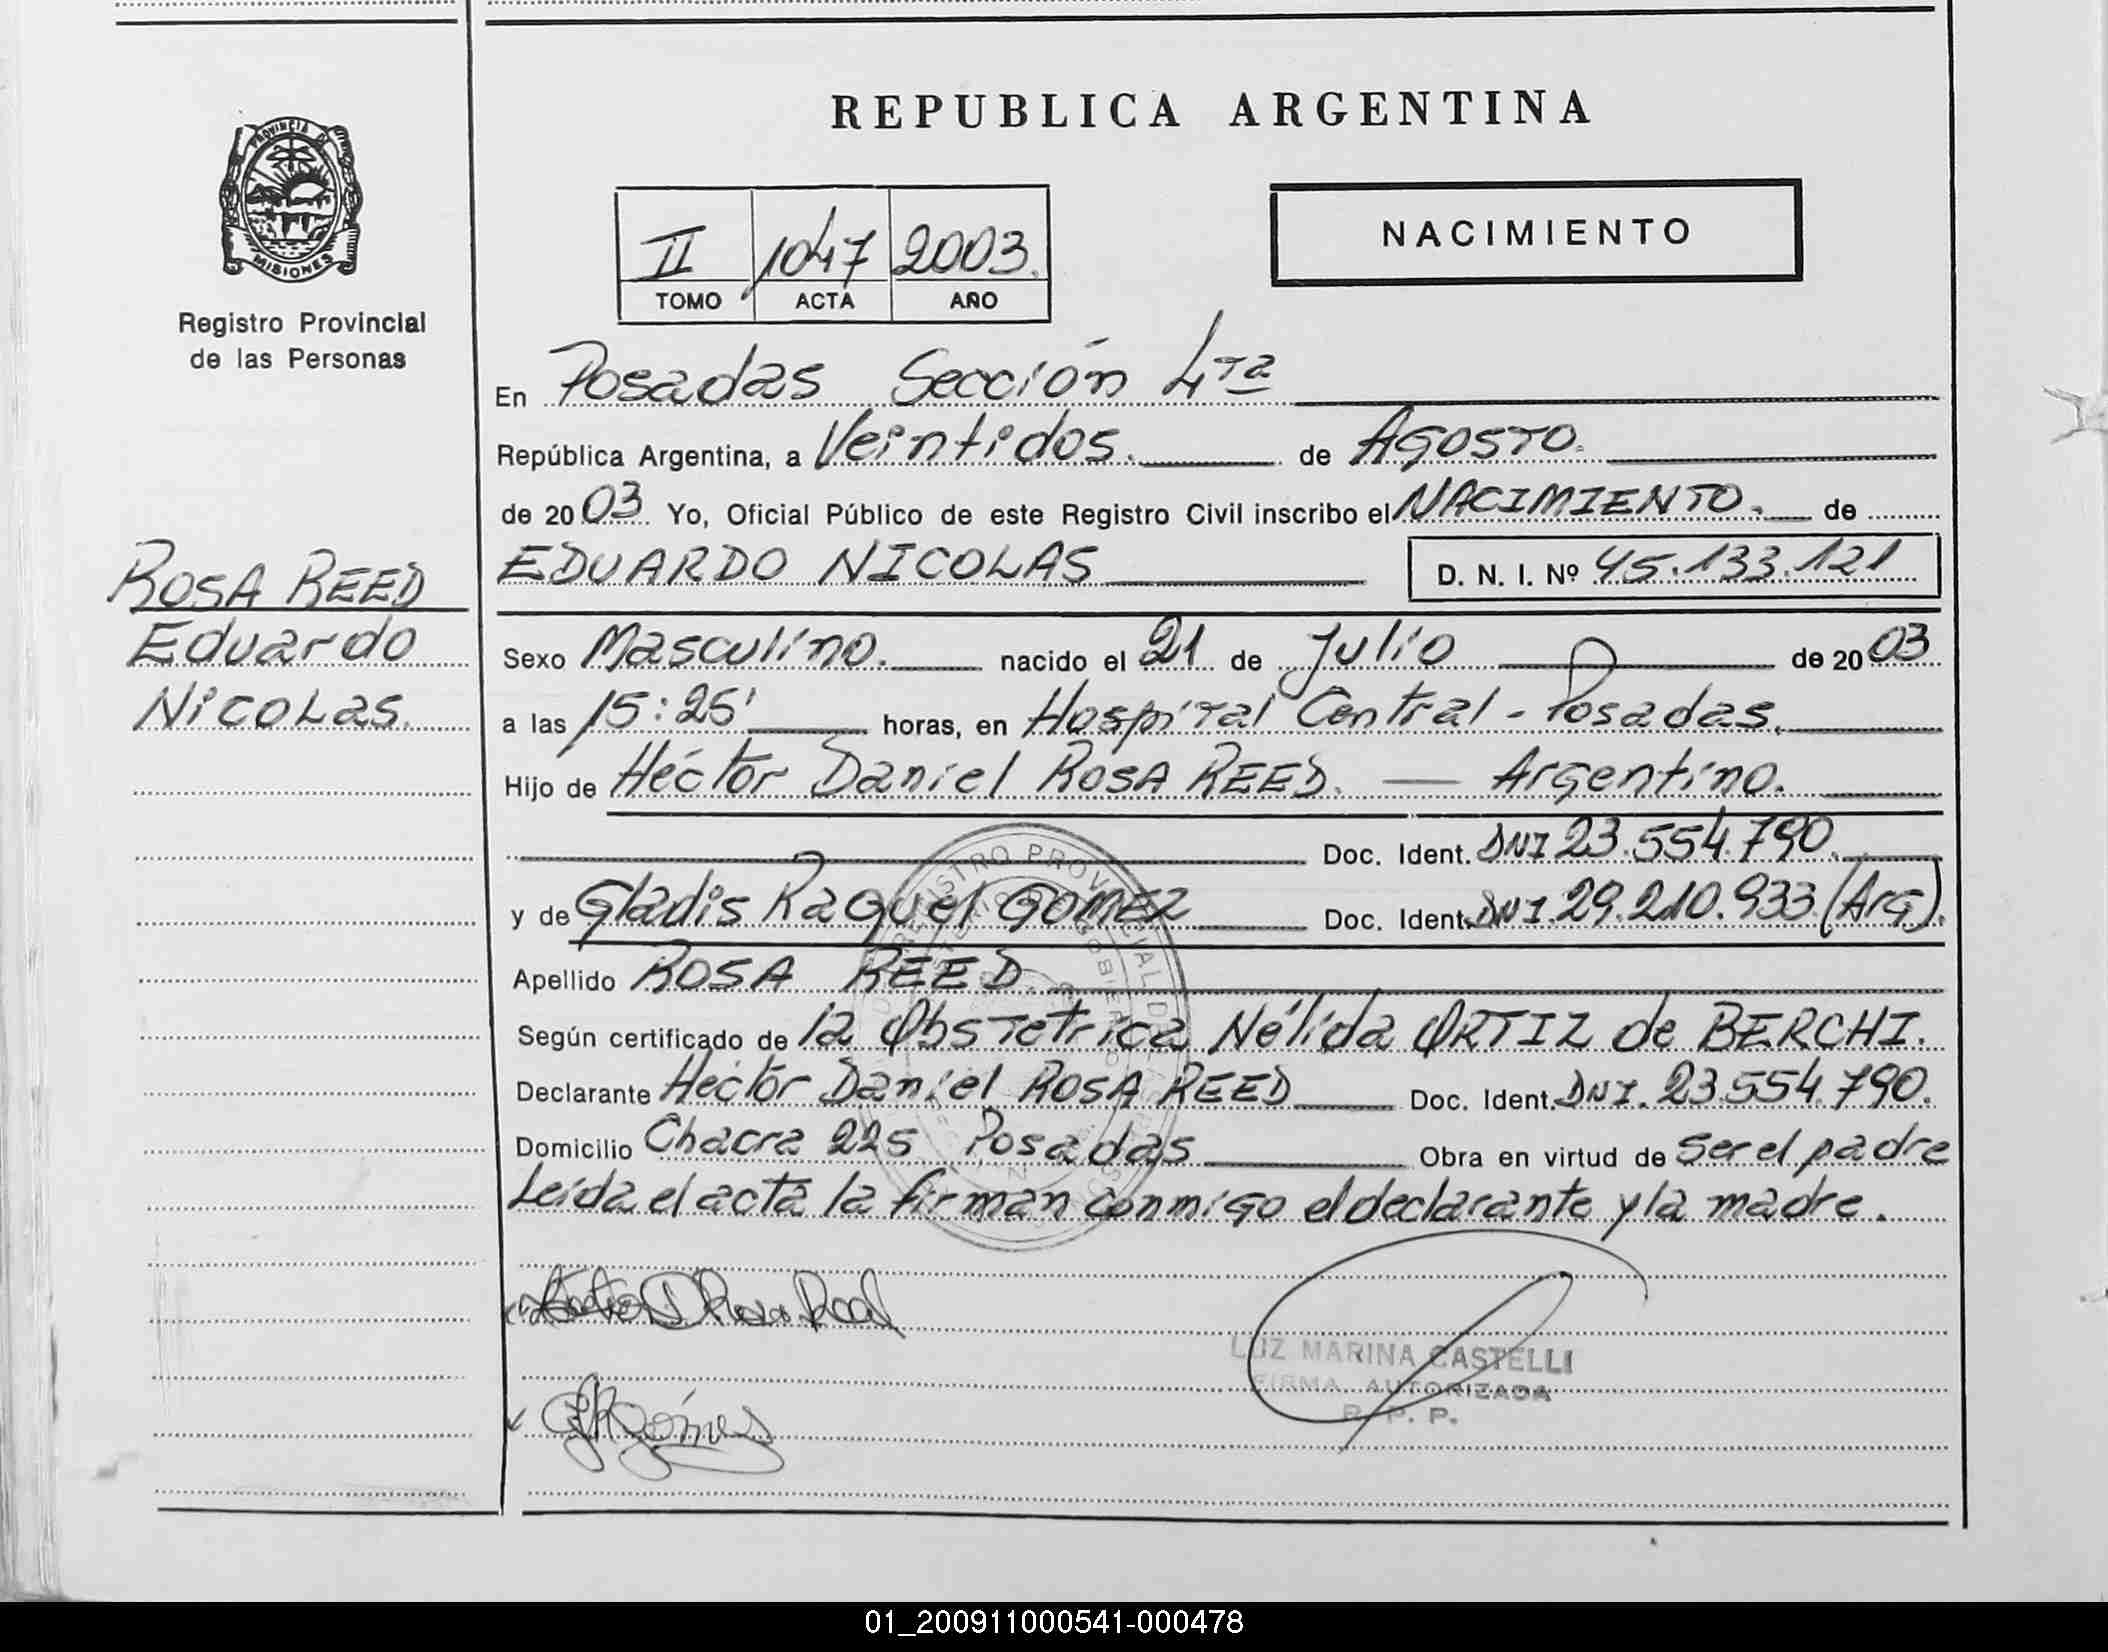 REPUBLICA ARGENTINA
PROVINCIA DE
MISIONES
Registro Provincial
de las Personas
II 1047 2003.
TOMO ACTA AÑO
NACIMIENTO
En Posadas Sección 4ta
República Argentina, a Veintidos. de Agosto.
de 2003 Yo, Oficial Público de este Registro Civil inscribo el NACIMIENTO. de
EDUARDO NICOLAS D. N. I. Nº 45.133.121
ROSA REED
Eduardo
Nicolas.
Sexo Masculino. nacido el 21 de Julio de 2003
a las 15:25' horas, en Hospital Central - Posadas.
Hijo de Héctor Daniel ROSA REED. — Argentino.
Doc. Ident. DNI 23.554.790.
y de Gladis Raquel GOMEZ Doc. Ident. DNI. 29.210.933 (Arg).
Apellido ROSA REED
Según certificado de la Obstetrica Nélida ORTIZ de BERCHI.
Declarante Hector Daniel ROSA REED Doc. Ident. DNI. 23.554.790.
Domicilio Chacra 225 Posadas Obra en virtud de ser el padre
Leida el acta la firman conmigo el declarante y la madre.
REGISTRO PROVINCIAL DE LAS
LUZ MARINA CASTELLI
FIRMA AUTORIZADA
R. P. P.
01_200911000541-000478